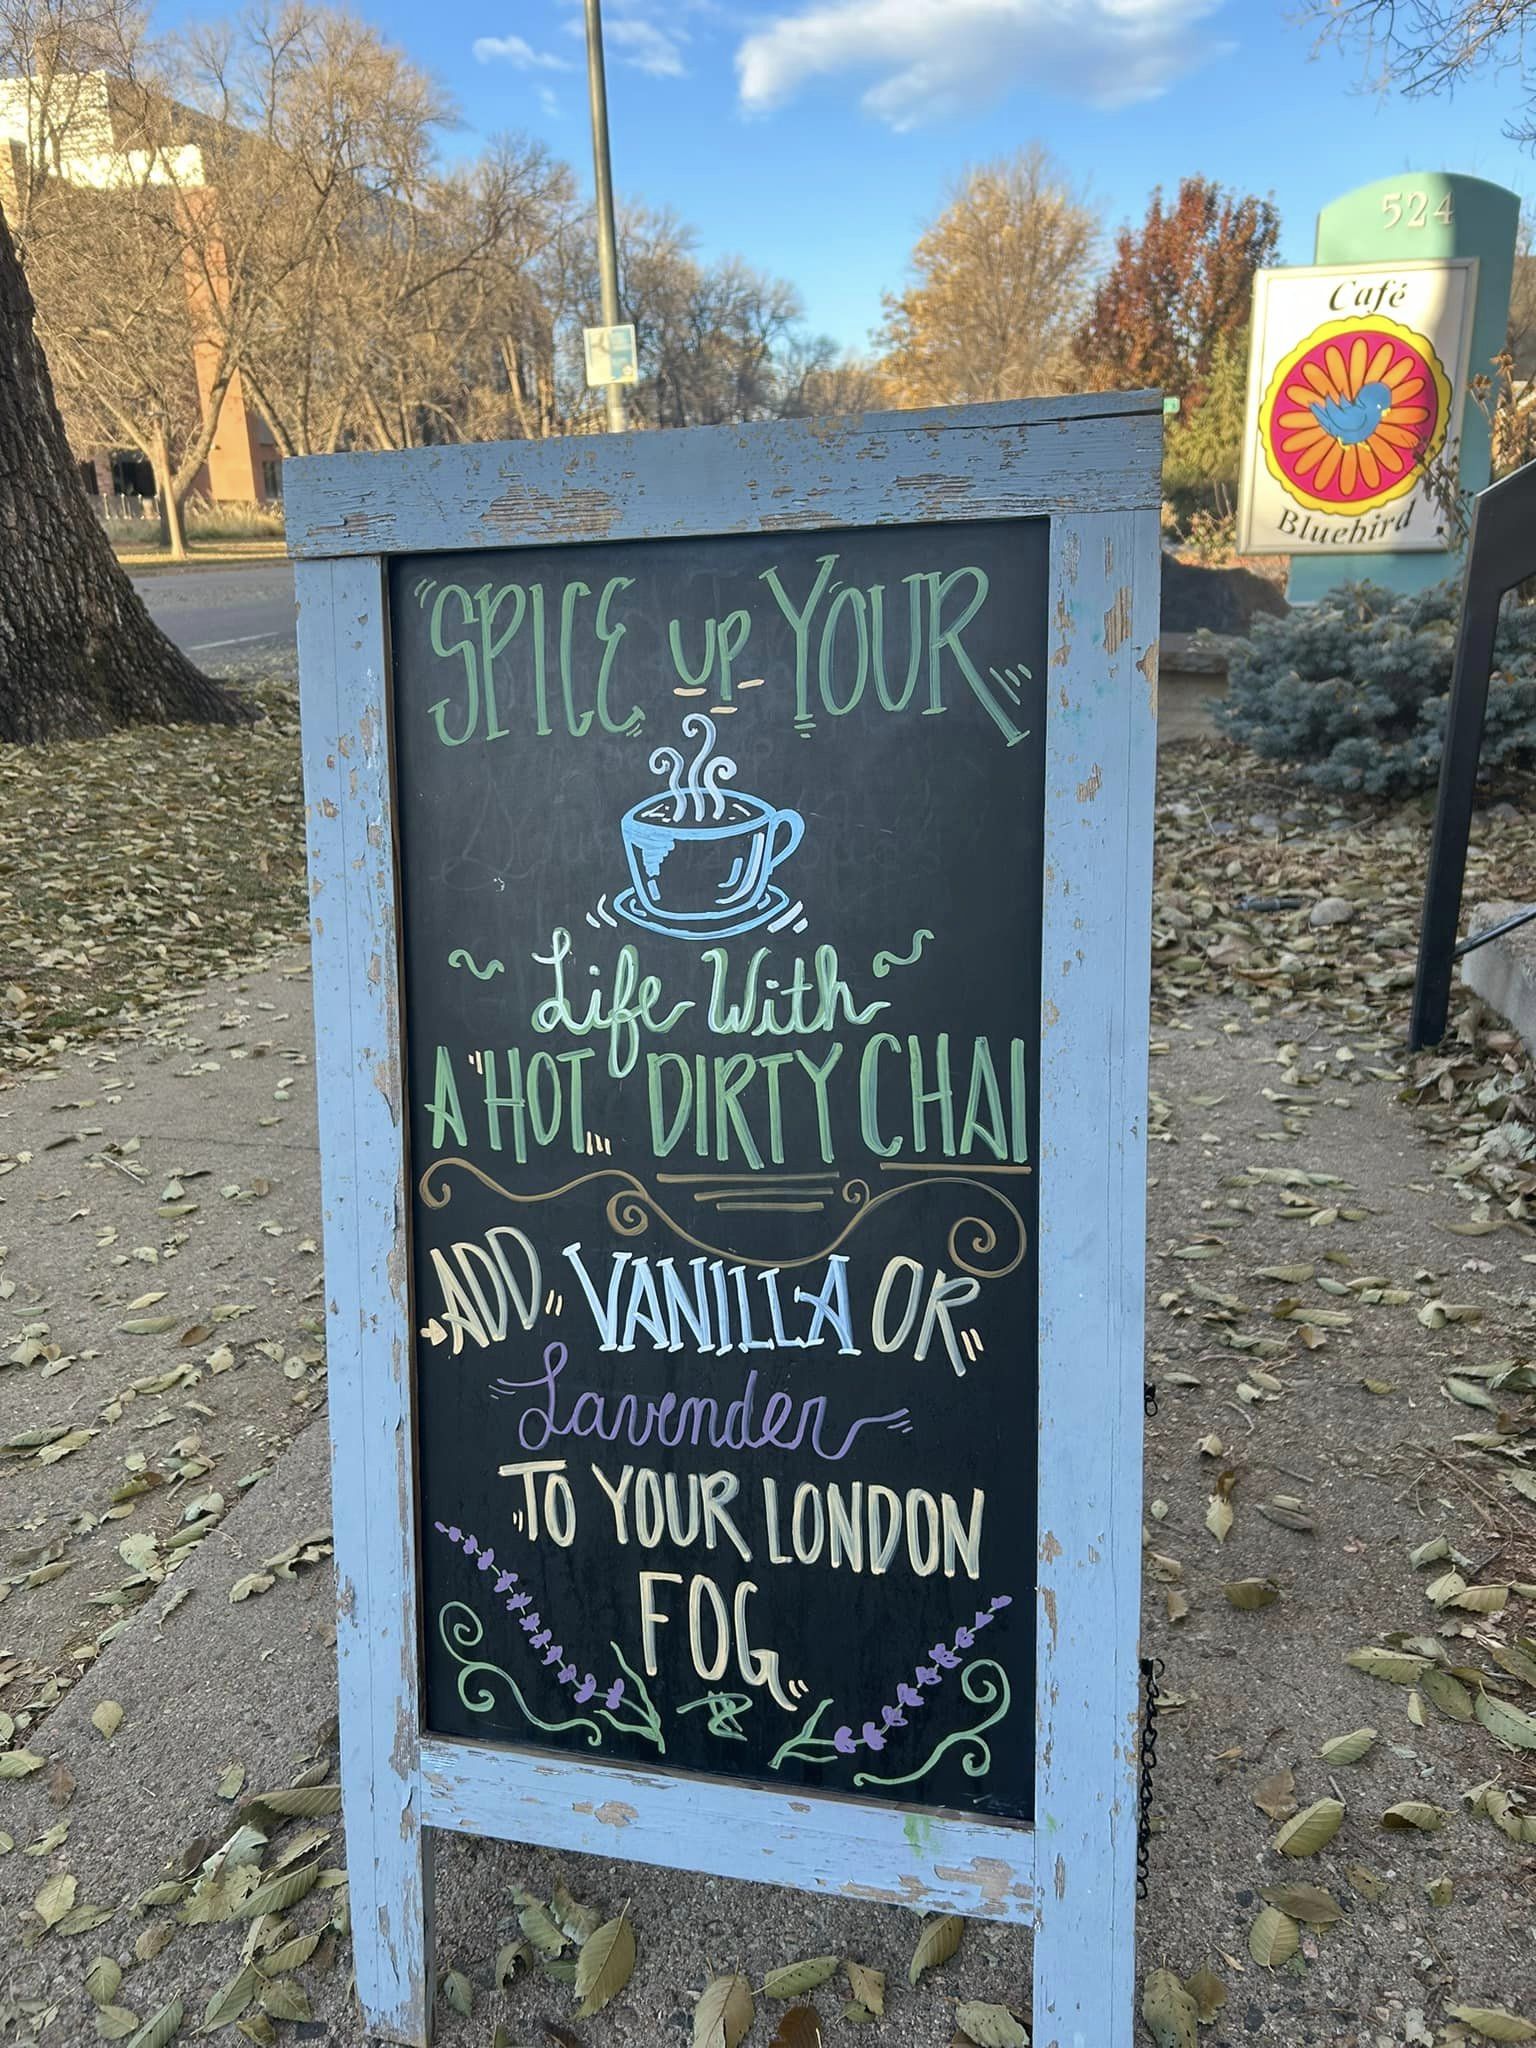 524
Café
Bluebird
SPICE UP YOUR
Life With
A HOT DIRTY CHAI
ADD VANILLA OR
Lavender
TO YOUR LONDON
FOG